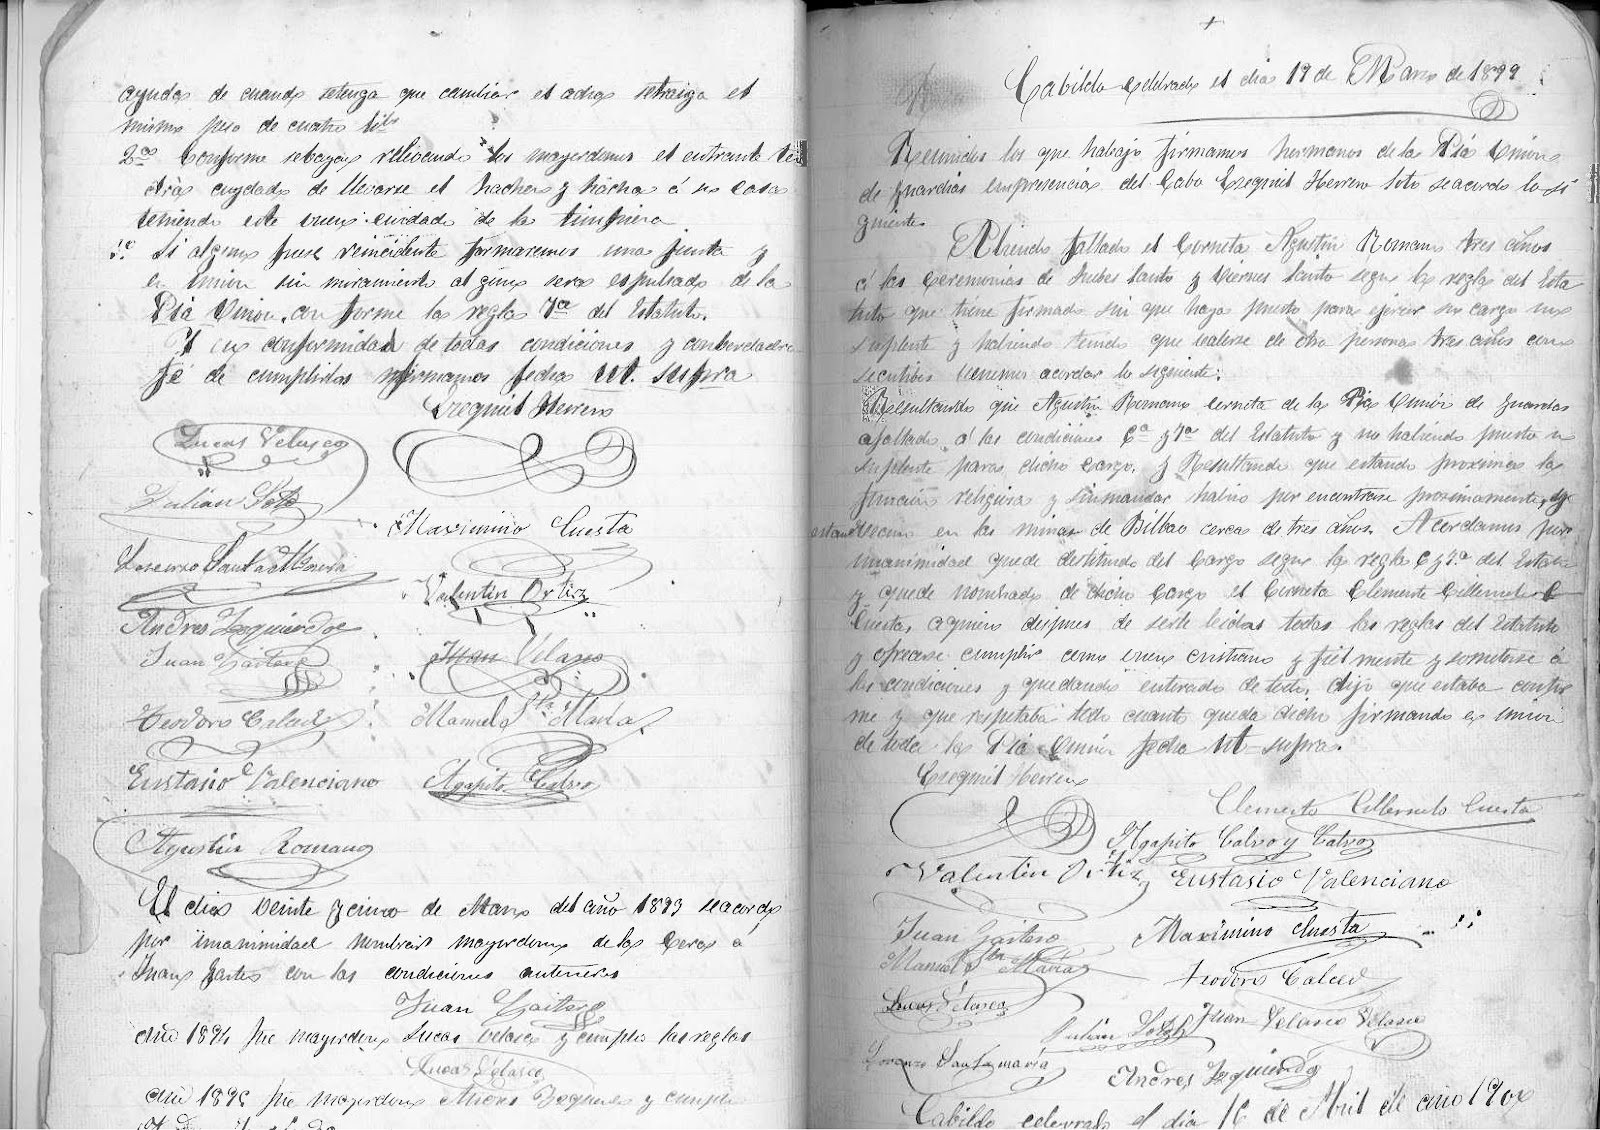 ayuda de cuando setenga que cambiar el adra setraiga el
mismo peso de cuatro
2ª Conforme sebayan relevando los mayordomos el entrante ten
drá cuydado de llevarse el hachero y hacha á su casa
teniendo este buen cuidado de la limpieza
3ª Si alguno fuese reincidente formaremos una junta y
en union sin miramiento alguno sera espulsado de la
Pia Union, conforme la regla 7ª del Estatuto.
Y en conformidad de todas condiciones y con berdadera
fé de cumplirlas firmamos fecha ut supra
Ezequiel Herrero
Lucas Velasco
Julián Soto
Maximino Cuesta
Lorenzo Santa María
Valentin Ortiz
Andres Izquierdo
Juan Gaitero
Juan Velasco
Teodoro Calvo
Manuel Sta María
Eustasio Valenciano
Agapito Calvo
Agustin Romano
El dia veinte y cinco de Marzo del año 1893 se acordo
por unanimidad nombrar mayordomo de la Cera á
Juan Gaitero con las condiciones anteriores
Juan Gaitero
año 1894 fue mayordomo Lucas Velasco y cumplio las reglas
Lucas Velasco
año 1895 fue mayordomo Andres Izquierdo y cumplio
Cabildo celebrado el dia 19 de Marzo de 1899
Reunidos los que habajo firmamos hermanos de la Pia Union
de guardias en presencia del Cabo Ezequiel Herrero Soto se acordo lo si
guiente.
Abiendo faltado el Corneta Agustin Romano tres años
á las ceremonias de Jueves Santo y Viernes Santo segun la regla del Esta
tuto que tiene firmado sin que haya puesto para ejercer su cargo un
suplente y habiendo tenido que valerse de otra persona tres años con
secutibos venimos acordar lo siguiente:
Resultando que Agustin Romano Corneta de la Pia Union de guardias
afaltado á las condiciones 6ª y 7ª del Estatuto y no habiendo puesto un
suplente para dicho cargo, y Resultando que estando proximas la
funcion religiosa y sin mandar habiso por encontrarse proximamente,
estando en las minas de Bilbao cerca de tres años. Acordamos por
unanimidad quede destituido del Cargo segun la regla 6 y 7ª del Estatuto
y quede nombrado de dicho Cargo el Corneta Clemente Cilleruelo
Cuesta, aquien despues de serle leidas todas las reglas del Estatuto
y ofrecese cumplir como buen cristiano y fielmente y someterse á
las condiciones y quedando enterado de testo, dijo que estaba confor
me y que respetaba todo cuanto queda dicho firmando en union
de toda la Pia Union fecha ut supra.
Ezequiel Herrero
Clemente Cilleruelo Cuesta
Agapito Calvo y Calvo
Valentin Ortiz
Eustasio Valenciano
Juan Gaitero
Maximino Cuesta
Manuel Sta María
Teodoro Calvo
Lucas Velasco
Julián Soto
Juan Velasco Velasco
Lorenzo Santamaría
Andres Izquierdo
Cabildo celebrado el dia 16 de Abril del año 190